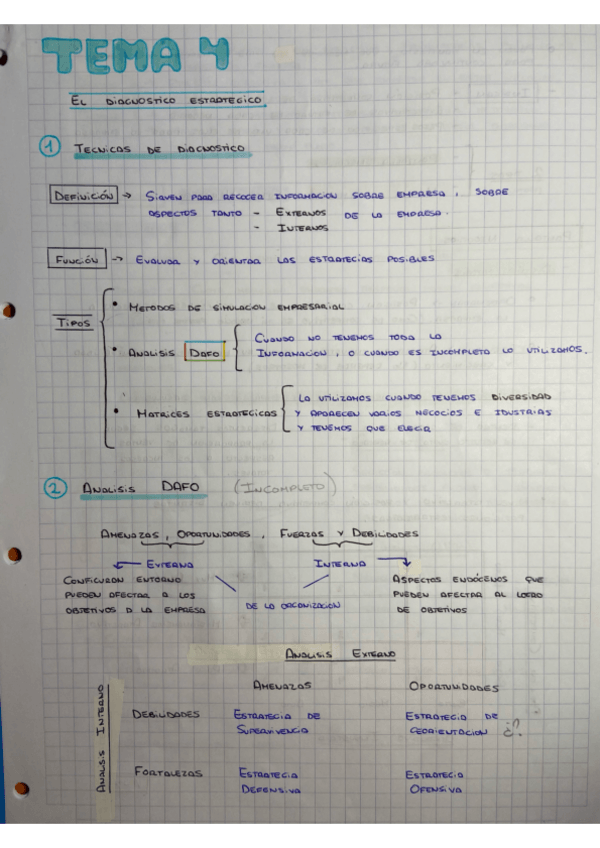 TEMA 4
EL DIAGNOSTICO ESTRATEGICO
1 TECNICAS DE DIAGNOSTICO
DEFINICIÓN → SIRVEN PARA RECOGER INFORMACION SOBRE EMPRESA, SOBRE
ASPECTOS TANTO - EXTERNOS DE LA EMPRESA.
- INTERNOS
FUNCIÓN → EVALUAR Y ORIENTAR LAS ESTRATEGIAS POSIBLES
TIPOS
• METODOS DE SIMULACION EMPRESARIAL
• ANALISIS DAFO
CUANDO NO TENEMOS TODA LA
INFORMACION, O CUANDO ES INCOMPLETA LO UTILIZAMOS.
• MATRICES ESTRATEGICAS
LA UTILIZAMOS CUANDO TENEMOS DIVERSIDAD
Y APARECEN VARIOS NEGOCIOS E IDUSTRIAS
Y TENEMOS QUE ELEGIR
2 ANALISIS DAFO (INCOMPLETO)
AMENAZAS, OPORTUNIDADES, FUERZAS Y DEBILIDADES
← EXTERNA INTERNA →
CONFIGURAN ENTORNO
PUEDEN AFECTAR A LOS
OBJETIVOS D LA EMPRESA
DE LA ORGANIZACION
ASPECTOS ENDÓGENOS QUE
PUEDEN AFECTAR AL LOGRO
DE OBJETIVOS
ANALISIS EXTERNO
AMENAZAS OPORTUNIDADES
ANALISIS INTERNO
DEBILIDADES ESTRATEGIA DE ESTRATEGIA DE
¿?
FORTALEZAS ESTRATEGIA ESTRATEGIA
DEFENSIVA OFENSIVA